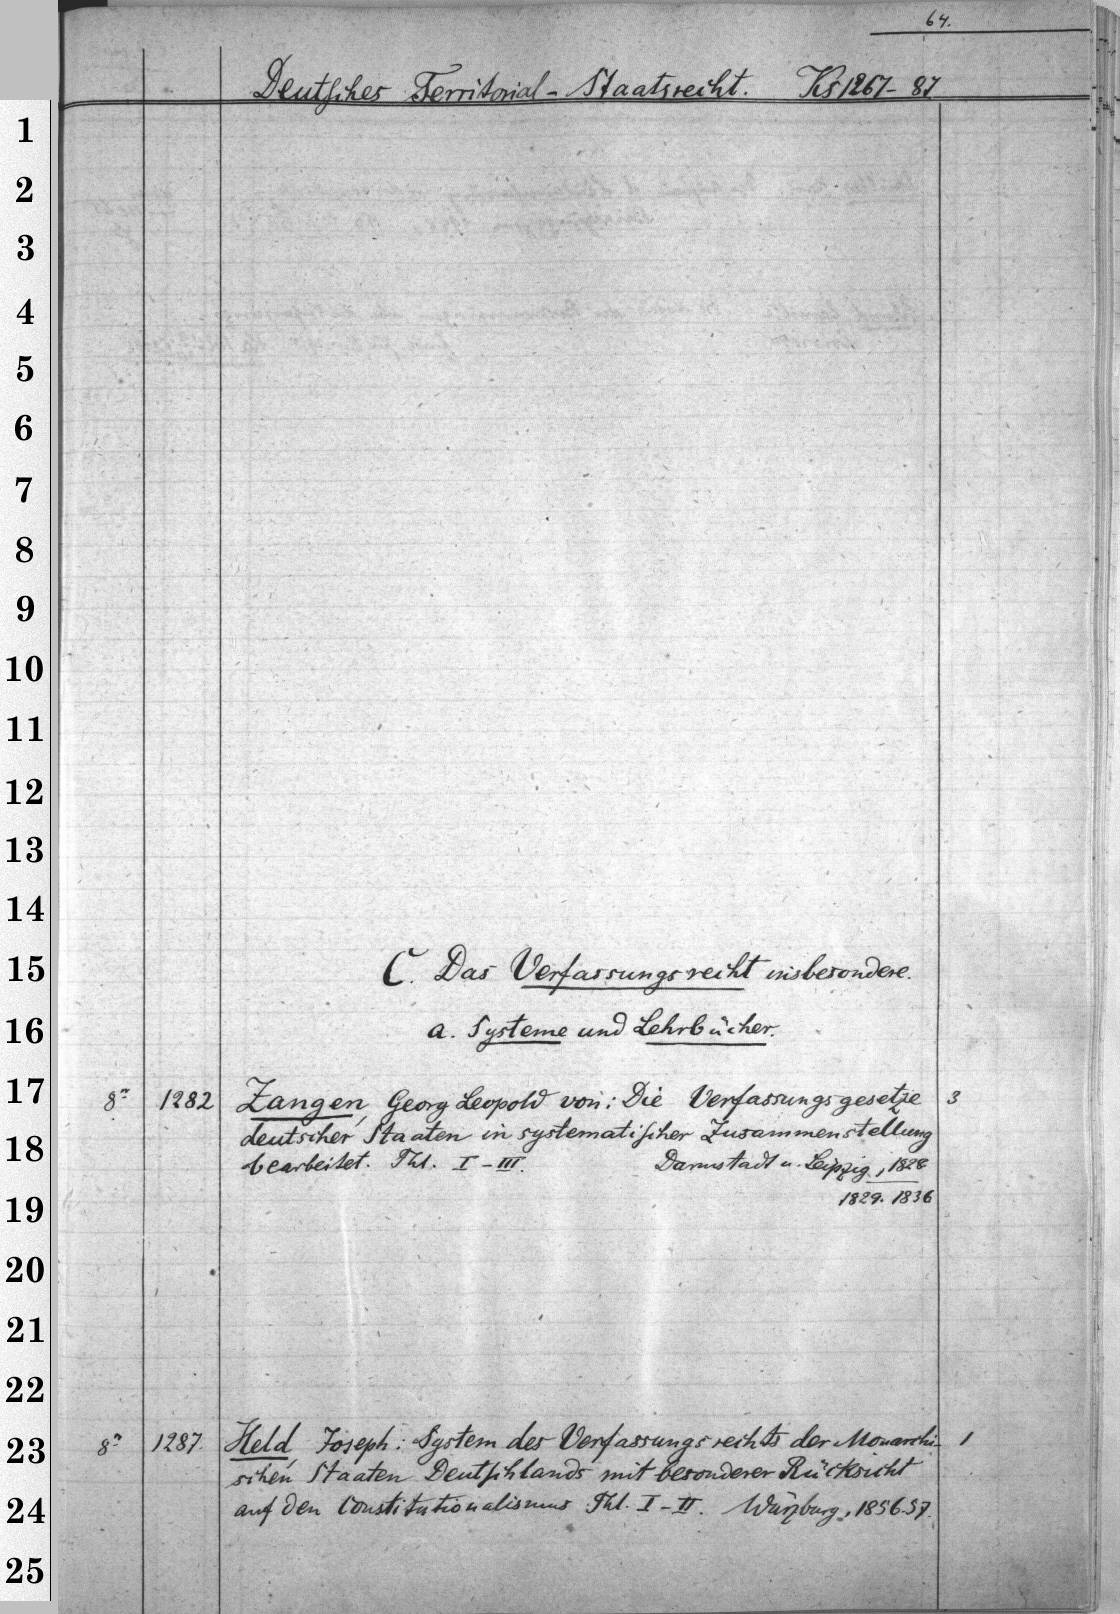 64.
Deutsches Territorial-Staatsrecht. Ks 1267-87
1
2
3
4
5
6
7
8
9
10
11
12
13
14
15
C. Das Verfassungsrecht insbesondere.
16
a. Systeme und Lehrbücher.
17
8° 1282 Zangen, Georg Leopold von: Die Verfassungsgesetze 3
deutscher Staaten in systematischer Zusammenstellung
18
bearbeitet. Thl. I-III. Darmstadt u. Leipzig, 1828
1829. 1836
19
20
21
22
23
8° 1287. Held, Joseph: System des Verfassungsrechts der Monarchi- 1
schen Staaten Deutschlands mit besonderer Rücksicht
24
auf den Constitutionalismus Thl. I-II. Würzburg, 1856.57.
25